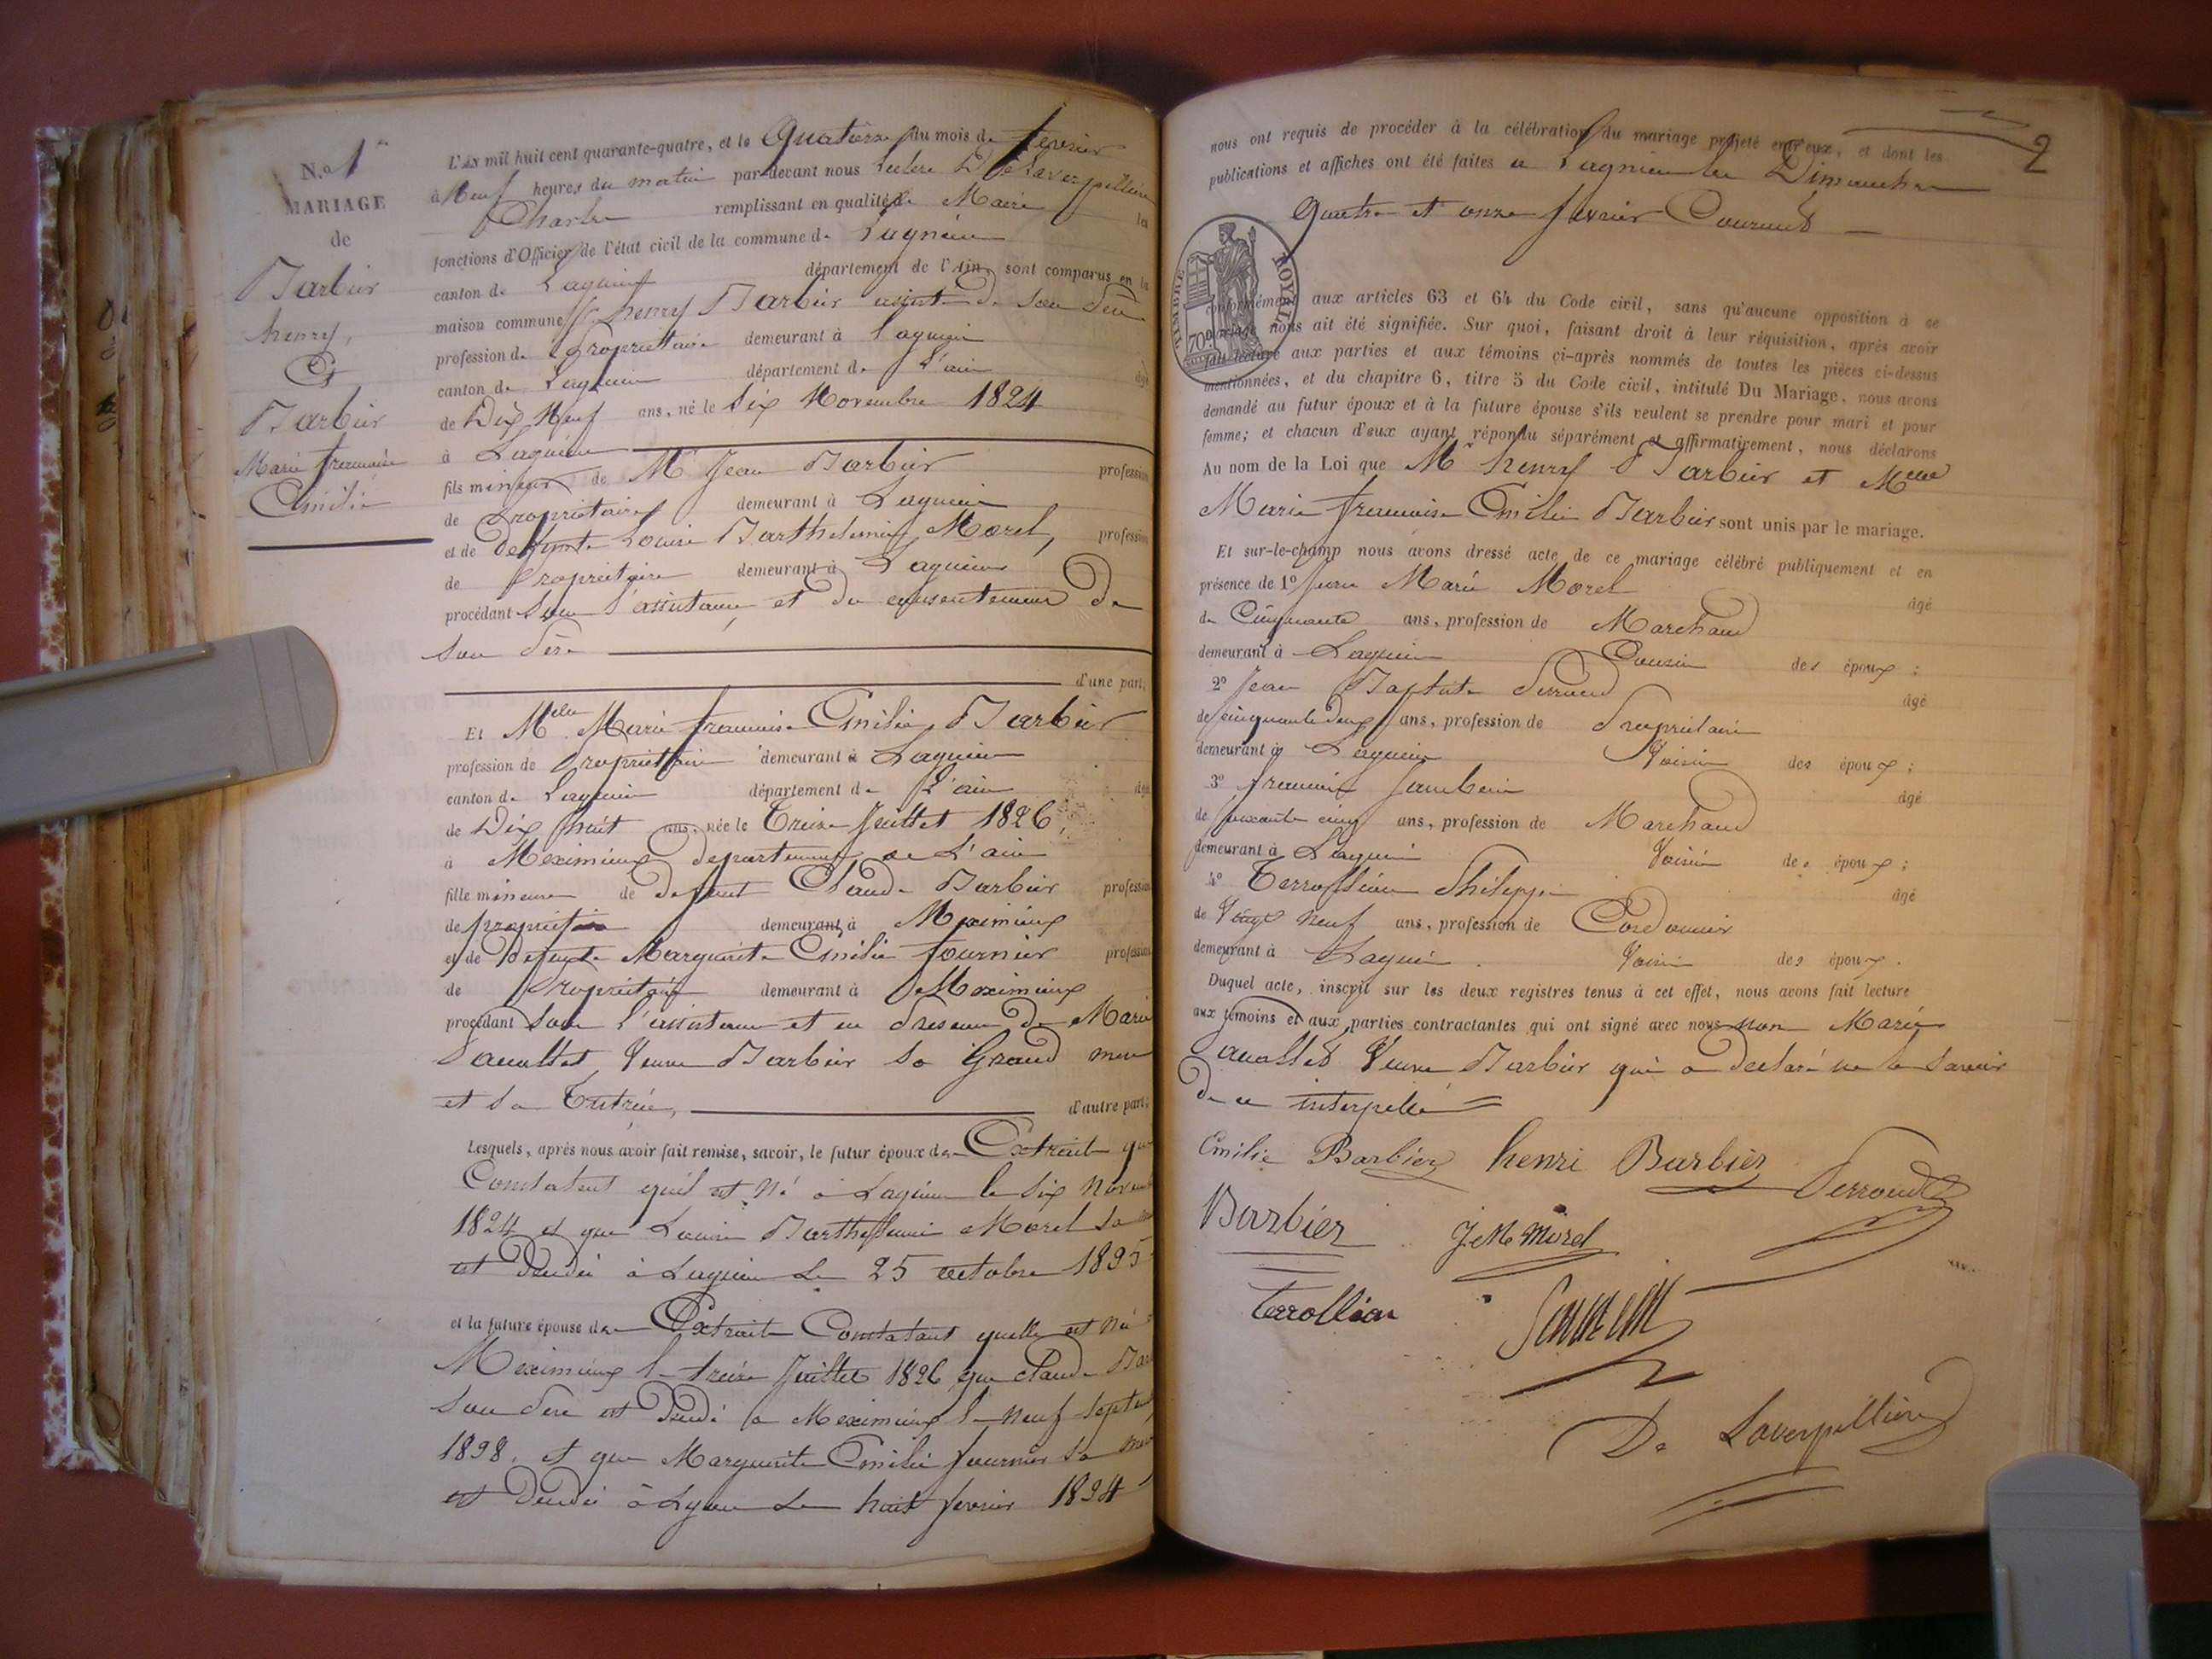 N.o 1er
MARIAGE
de
Barbier
henry,
Et
Barbier
Marie francoise
Emilie
L'an mil huit cent quarante-quatre, et le Quatorze du mois de fevrier
à Neuf heures du matin par-devant nous Leclerc De Laverpilliere
Charles remplissant en qualité de Maire les
fonctions d'Officier de l'état civil de la commune de Lagnieu
canton de Lagnieu département de l'Ain, sont comparus en la
maison commune Sr. henry Barbier assisté de son Père
profession de Proprietaire demeurant à Lagnieu
canton de Lagnieu département de L'ain âgé
de Dix Neuf ans, né le Six Novembre 1824
à Lagnieu
fils mineur de Mr Jean Barbier profession
de Proprietaire demeurant à Lagnieu
et de defunte Louise Barthelemie Morel, profession
de Propriétaire demeurant à Lagnieu
procédant Sous l'assistance et du consentement de
son Père
d'une part;
Et Melle Marie francoise Emilie Barbier
profession de Proprietaire demeurant à Lagnieu
canton de Lagnieu département de L'ain âgé
de Dix huit ans, née le Treize Juillet 1826,
à Meximieux departement de L'ain
fille mineure de Defunt Claude Barbier profession
de proprietaire demeurant à Meximieux
et de Defunte Marguerite Emilie fournier profession
de Propriétaire demeurant à Meximieux
procédant Sous l'assistance et en Presence de Marie
Veuve Barbier Sa Grand mere
et Sa Tutrice, d'autre part;
Lesquels, après nous avoir fait remise, savoir, le futur époux de Extrait qui
Constatent quil est Né à Lagnieu le Six Novemb
1824 et que Louise Barthelemie Morel Sa
est Décedée à Lagnieu Le 25 octobre 1835
et la future épouse de Extrait Constatant quelle est Né
Meximieux le treize Juillet 1826 que Claude Bar
Son Pere est Décedé a Meximieux le neuf Septem
1838. et que Marguerite Emilie fournier Sa mere
est Décedée à Lyon Le huit fevrier 1834
2
nous ont requis de procéder à la célébration du mariage projeté entr'eux, et dont les
publications et affiches ont été faites a Lagnieu les Dimanches
quatre et onze fevrier Courant
TIMBRE ROYAL
70c
conformément aux articles 63 et 64 du Code civil, sans qu'aucune opposition à ce
mariage nous ait été signifiée. Sur quoi, faisant droit à leur réquisition, après avoir
fait lecture aux parties et aux témoins ci-après nommés de toutes les pièces ci-dessus
mentionnées, et du chapitre 6, titre 5 du Code civil, intitulé Du Mariage, nous avons
demandé au futur époux et à la future épouse s'ils veulent se prendre pour mari et pour
femme; et chacun d'eux ayant répondu séparément et affirmativement, nous déclarons
Au nom de la Loi que Mr henry Barbier et Melle
Marie francoise Emilie Barbier sont unis par le mariage.
Et sur-le-champ nous avons dressé acte de ce mariage célébré publiquement et en
présence de 1o Jean Marie Morel âgé
de Cinquante ans, profession de Marchand
demeurant à Lagnieu Cousin des époux;
2o Jean Baptiste Perroud âgé
de cinquante deux ans, profession de Propriétaire
demeurant à Lagnieu Voisin des époux;
3o francois Janbein âgé
de soixante cinq ans, profession de Marchand
demeurant à Lagnieu Voisin des époux;
4o Terrollion Philippe âgé
de Vingt Neuf ans, profession de Cordonnier
demeurant à Lagnieu Voisin des époux.
Duquel acte, inscrit sur les deux registres tenus à cet effet, nous avons fait lecture
aux témoins et aux parties contractantes qui ont signé avec nous non Marie
Veuve Barbier qui a déclaré ne le savoir
de ce interpellé
Emilie Barbier henri Barbier Perroud
Barbier J. M. Morel
terollion
De Laverpilliere